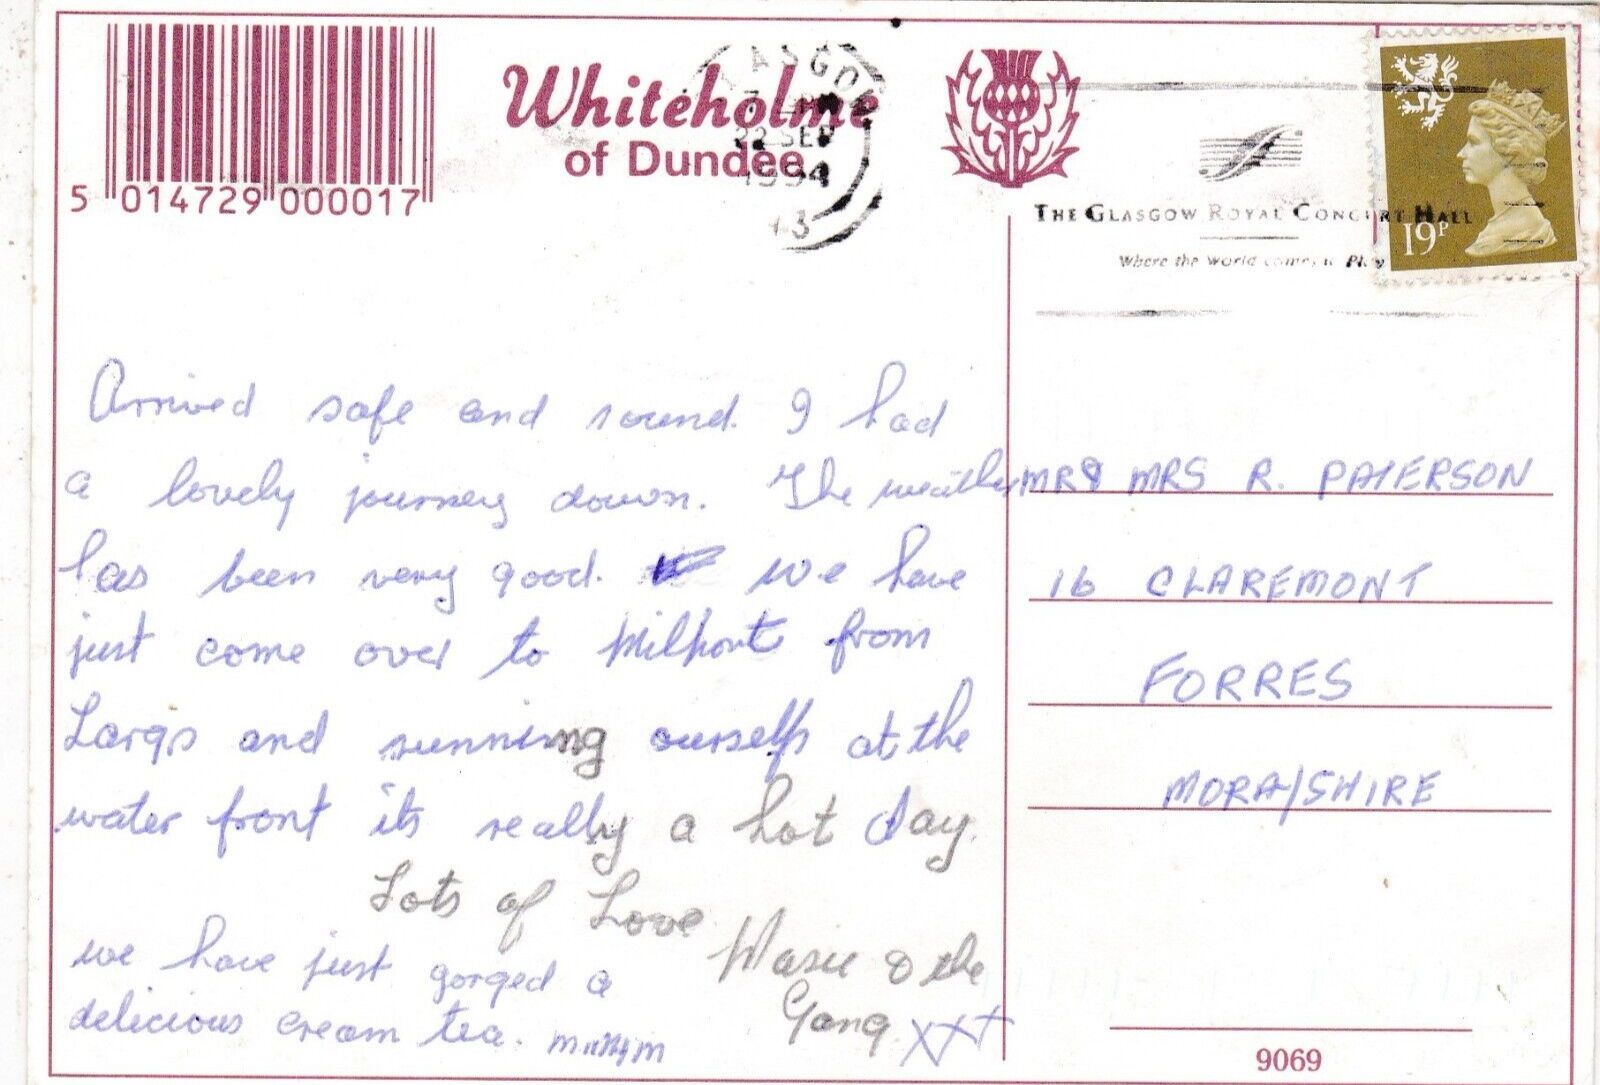 5 014729 000017
Whiteholme
of Dundee
GLASGOW
22 SEP
1994
THE GLASGOW ROYAL CONCERT HALL
Where the world comes to Play
19P
Arrived safe and sound. I had
a lovely journey down. The weather
has been very good. we have
just come over to Milport from
Largs and sunning ourselfs at the
water front its really a hot day.
Lots of Love
& the
Gang. XXX
we have just gorged a
delicious cream tea.
MR & MRS R. PATERSON
16 CLAREMONT
FORRES
MORAYSHIRE
9069